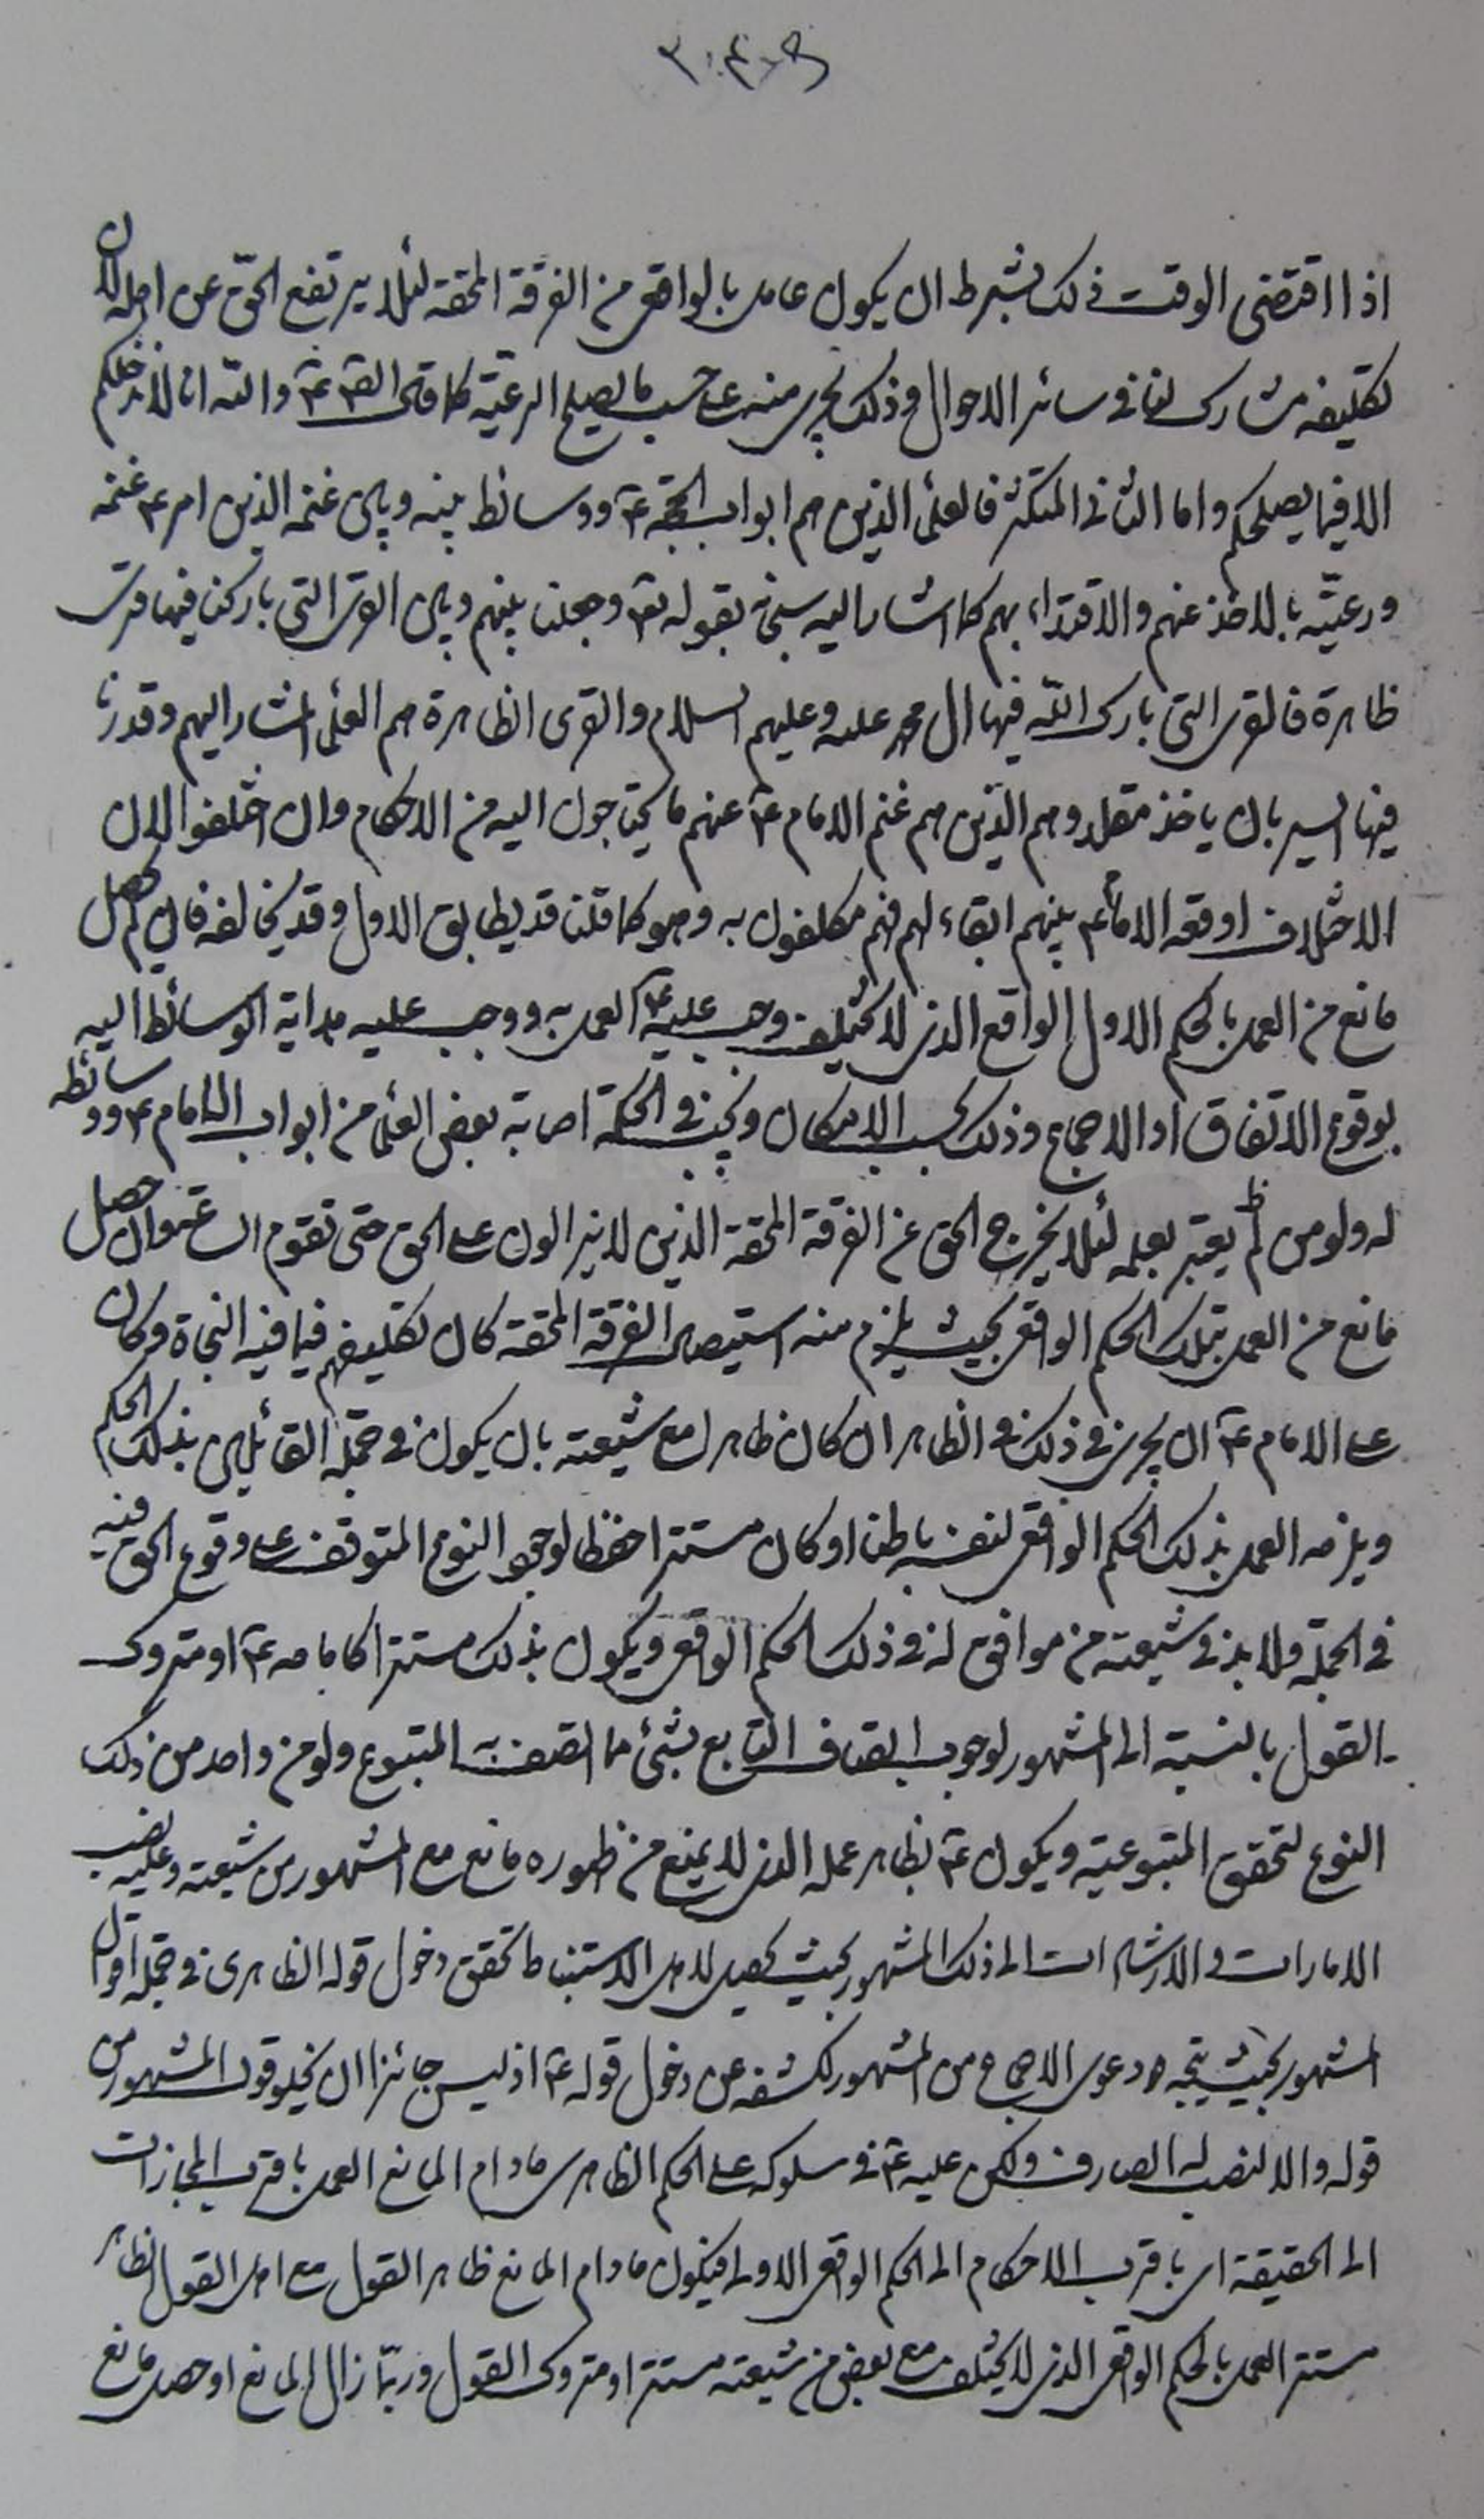 اذا اقتضى الوقت ذلك بشرط ان يكون عامل بالواقعى من الفرقة المحقة لئلا يرتفع الحق عن اهله لان
تكليفه مشارك لنا فى سائر الاحوال وذلك يجرى منه على حسب ما يصلح الرعيّة كما قال الصادق ع والله انا لا ندخلكم
الا فيما يصلحكم واما الثانى المتكثر فالعلماء الذين هم ابواب الحجّة ع ووسائط بينه وبين غنمه الذين امر ع غنمه
ورعيّته بالاخذ عنهم والاقتداء بهم كما اشار اليه سبحانه بقوله تع وجعلنا بينهم وبين القرى التى باركنا فيها قرى
ظاهرة فالقرى التى بارك الله فيها ال محمد عليه وعليهم السلام والقرى الظاهرة هم العلماء المشار اليهم وقدرنا
فيها السير بان ياخذ مقلدوهم الذين هم غنم الامام ع عنهم ما يحتاجون اليه من الاحكام وان اختلفوا لان
الاختلاف اوقعه الامام ع بينهم ابقاء لهم فهم مكلفون به وهو كما قلنا قد يطابق الاول وقد يخالفه فان لم يحصل
مانع من العمل بالحكم الاول الواقع الذى لا يختلف وجب عليه ع العمل به ووجب عليه هداية الوسائط اليه
بوقوع الاتفاق او الاجماع وذلك بحسب الامكان ويجب فى الحكمة اصابة بعض العلماء من ابواب الامام ع ووسائطه
له ولو من لم يعتبر بعلمه لئلا يخرج الحق عن الفرقة المحقة الذين لا يزالون على الحق حتى تقوم الساعة وان حصل
مانع من العمل بتلك الحكم الواقعى بحيث يلزم منه استيصال الفرقة المحقة كان تكليفهم فيما فيه النجاة وكان
على الامام ع ان يجرى فى ذلك فى الظاهر ان كان ظاهرا مع شيعته بان يكون فى جملة القائلين بذلك الحكم
ويلزمه العمل بذلك الحكم الواقعى لنفسه باطنا او كان مستترا حفظا لوجود النوع المتوقف على وقوع الحق فيه
فى الجملة ولا بد فى شيعته من موافق له فى ذلك الحكم الواقعى ويكون بذلك مستترا كامامه ع او متروك
القول بالنسبة الى المشهور لوجوب اتصاف التابع بشئ مما اتصف به المتبوع ولو من واحد من ذلك
النوع لتحقق المتبوعيّة ويكون ع بظاهر عمله الذى لا يمنع من ظهوره مانع مع المشهور من شيعته وعليه نصب
الامارات والارشادات الى ذلك المشهور بحيث يحصل لاهل الاستنباط تحقق دخول قوله الظاهرى فى جملة اقوال
المشهور بحيث يتجه دعوى الاجماع من المشهور لكشفه عن دخول قوله ع اذ ليس جائزا ان يخلو قول المشهور من
قوله والا لنصب له الصارف ولكن عليه ع فى سلوكه على الحكم الظاهرى مادام المانع العمل باقرب المجازات
الى الحقيقة اى باقرب الاحكام الى الحكم الواقعى الاولى فيكون مادام المانع ظاهر القول مع اهل القول الظاهر
مستتر العمل بالحكم الواقعى الذى لا يختلف مع بعض من شيعته مستترا او متروك القول وربّما زال المانع او حصل مانع